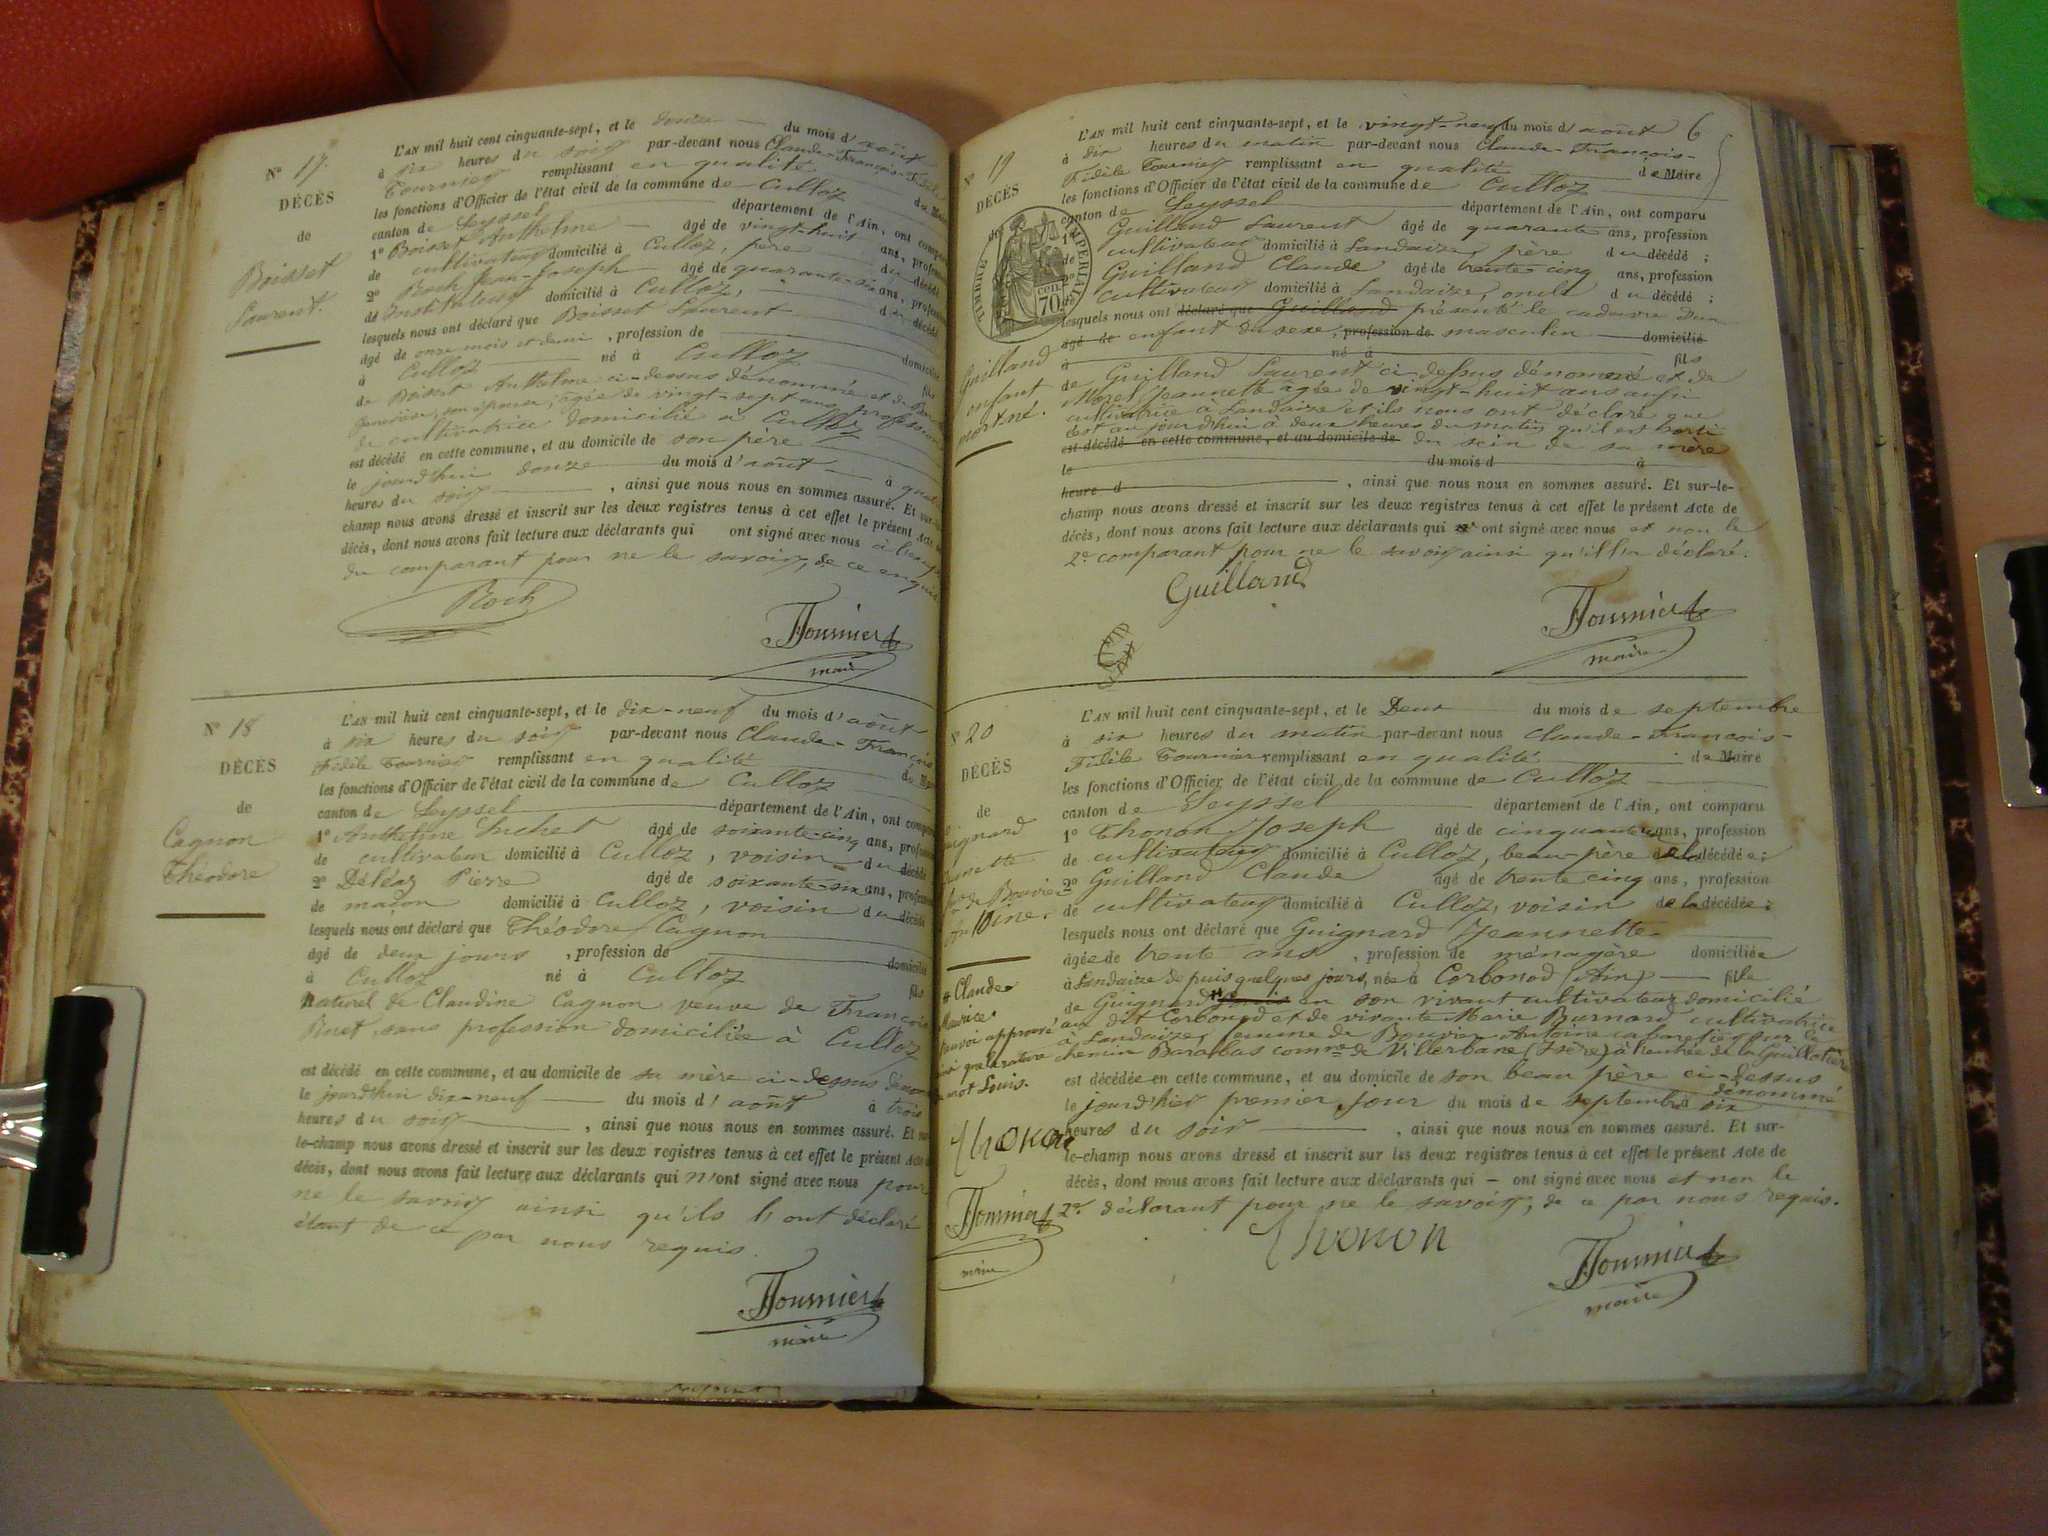 N° 17.
DÉCÈS
de
Boisset
Laurent.
L'AN mil huit cent cinquante-sept, et le douze du mois d'août
à six heures du soir par-devant nous Claude-François-Fidèle
Tournier remplissant en qualité de Maire
les fonctions d'Officier de l'état civil de la commune de Culloz
canton de Seyssel département de l'Ain, ont comparu
1° Boisset Anthelme âgé de vingt-huit ans, profession
de cultivateur domicilié à Culloz, père du décédé
2° Roch Jean-Joseph âgé de quarante-six ans, profession
de Instituteur domicilié à Culloz, du décédé
lesquels nous ont déclaré que Boisset Laurent
âgé de onze mois et demi, profession de domicilié
à Culloz né à Culloz fils
de Boisset Anthelme ci-dessus dénommé et de
son épouse, agée de vingt-sept ans, profession
de cultivatrice domicilié à Culloz
est décédé en cette commune, et au domicile de son père
le jourd'hui douze du mois d'août à
heures du soir, ainsi que nous nous en sommes assuré. Et sur-le-
champ nous avons dressé et inscrit sur les deux registres tenus à cet effet le présent Acte de
décès, dont nous avons fait lecture aux déclarants qui ont signé avec nous à
du comparant pour ne le savoir, de ce enquis
Roch
Tournier
maire
N° 18
DÉCÈS
de
Cagnon
Théodore
L'AN mil huit cent cinquante-sept, et le dix-neuf du mois d'août
à six heures du soir par-devant nous Claude-François
Fidèle Tournier remplissant en qualité de Maire
les fonctions d'Officier de l'état civil de la commune de Culloz
canton de Seyssel département de l'Ain, ont comparu
1° Anthelme Suchet âgé de soixante-cinq ans, profession
de cultivateur domicilié à Culloz, voisin du décédé
2° Déléaz Pierre âgé de soixante-six ans, profession
de maçon domicilié à Culloz, voisin du décédé
lesquels nous ont déclaré que Théodore Cagnon
âgé de deux jours, profession de domicilié
à Culloz né à Culloz fils
naturel de Claudine Cagnon veuve de François
Binet sans profession domiciliée à Culloz
est décédé en cette commune, et au domicile de sa mère ci-dessus
le jourd'hui dix-neuf du mois d'août à trois
heures du soir, ainsi que nous nous en sommes assuré. Et sur-
le-champ nous avons dressé et inscrit sur les deux registres tenus à cet effet le présent Acte de
décès, dont nous avons fait lecture aux déclarants qui n'ont signé avec nous pour
ne le savoir ainsi qu'ils l'ont déclaré
étant de ce par nous requis.
Tournier
maire
6
N° 19
DÉCÈS
de
TIMBRE IMPERIAL
70 cen
Guilland
enfant
mort né.
L'AN mil huit cent cinquante-sept, et le vingt-neuf du mois d'août
à dix heures du matin par-devant nous Claude-François-
Fidèle Tournier remplissant en qualité de Maire
les fonctions d'Officier de l'état civil de la commune de Culloz
canton de Seyssel département de l'Ain, ont comparu
1° Guilland Laurent âgé de quarante ans, profession
de cultivateur domicilié à Landaize, père du décédé ;
2° Guilland Claude âgé de trente cinq ans, profession
cultivateur domicilié à Landaize, oncle du décédé ;
lesquels nous ont déclaré que Guilland présenté le cadavre d'un
âgé de enfant du sexe, profession de masculin domicilié
à né à fils
de Guilland Laurent ci-dessus dénommé et de
Moret Jeannette agée de vingt-huit ans aussi
cultivatrice à Landaize et ils nous ont déclaré que
c'est au jourd'hui à deux heures du matin qu'il est sorti
est décédé en cette commune, et au domicile de du sein de sa mère
le du mois d à
heure d, ainsi que nous nous en sommes assuré. Et sur-le-
champ nous avons dressé et inscrit sur les deux registres tenus à cet effet le présent Acte de
décès, dont nous avons fait lecture aux déclarants qui ont signé avec nous et non le
2e comparant pour ne le savoir ainsi qu'il l'a déclaré.
Guilland
Tournier
maire
N° 20
DÉCÈS
de
Guignard
Jeannette
fe de Bouvier
Antoine.
# Claude
Maurice.
renvoi approuvé
ainsi que la rature
du mot Louis.
Thonon
Tournier
maire
L'AN mil huit cent cinquante-sept, et le Deux du mois de septembre
à six heures du matin par-devant nous Claude-François-
Fidèle Tournier remplissant en qualité de Maire
les fonctions d'Officier de l'état civil de la commune de Culloz
canton de Seyssel département de l'Ain, ont comparu
1° Thonon Joseph âgé de cinquante ans, profession
de cultivateur domicilié à Culloz, beau-père de la décédée ;
2° Guilland Claude âgé de trente cinq ans, profession
de cultivateur domicilié à Culloz, voisin de la décédée ;
lesquels nous ont déclaré que Guignard Jeannette
âgée de trente ans, profession de ménagère domiciliée
à Landaize depuis quelques jours, née à Corbonod (Ain) fille
de Guignard # Louis en son vivant cultivateur domicilié
au dit Corbonod et de vivante Marie Burnard cultivatrice
à Landaize, femme de Bouvier Antoine cabaretier sur le
chemin Barabas comne de Villerbane (Isère) à l'entrée de la Guillotière
est décédée en cette commune, et au domicile de son beau père ci-dessus
dénommé
le jourd'hier premier jour du mois de septembre à six
heures du soir, ainsi que nous nous en sommes assuré. Et sur-
le-champ nous avons dressé et inscrit sur les deux registres tenus à cet effet le présent Acte de
décès, dont nous avons fait lecture aux déclarants qui — ont signé avec nous et non le
2e déclarant pour ne le savoir, de ce par nous requis.
Thonon
Tournier
maire